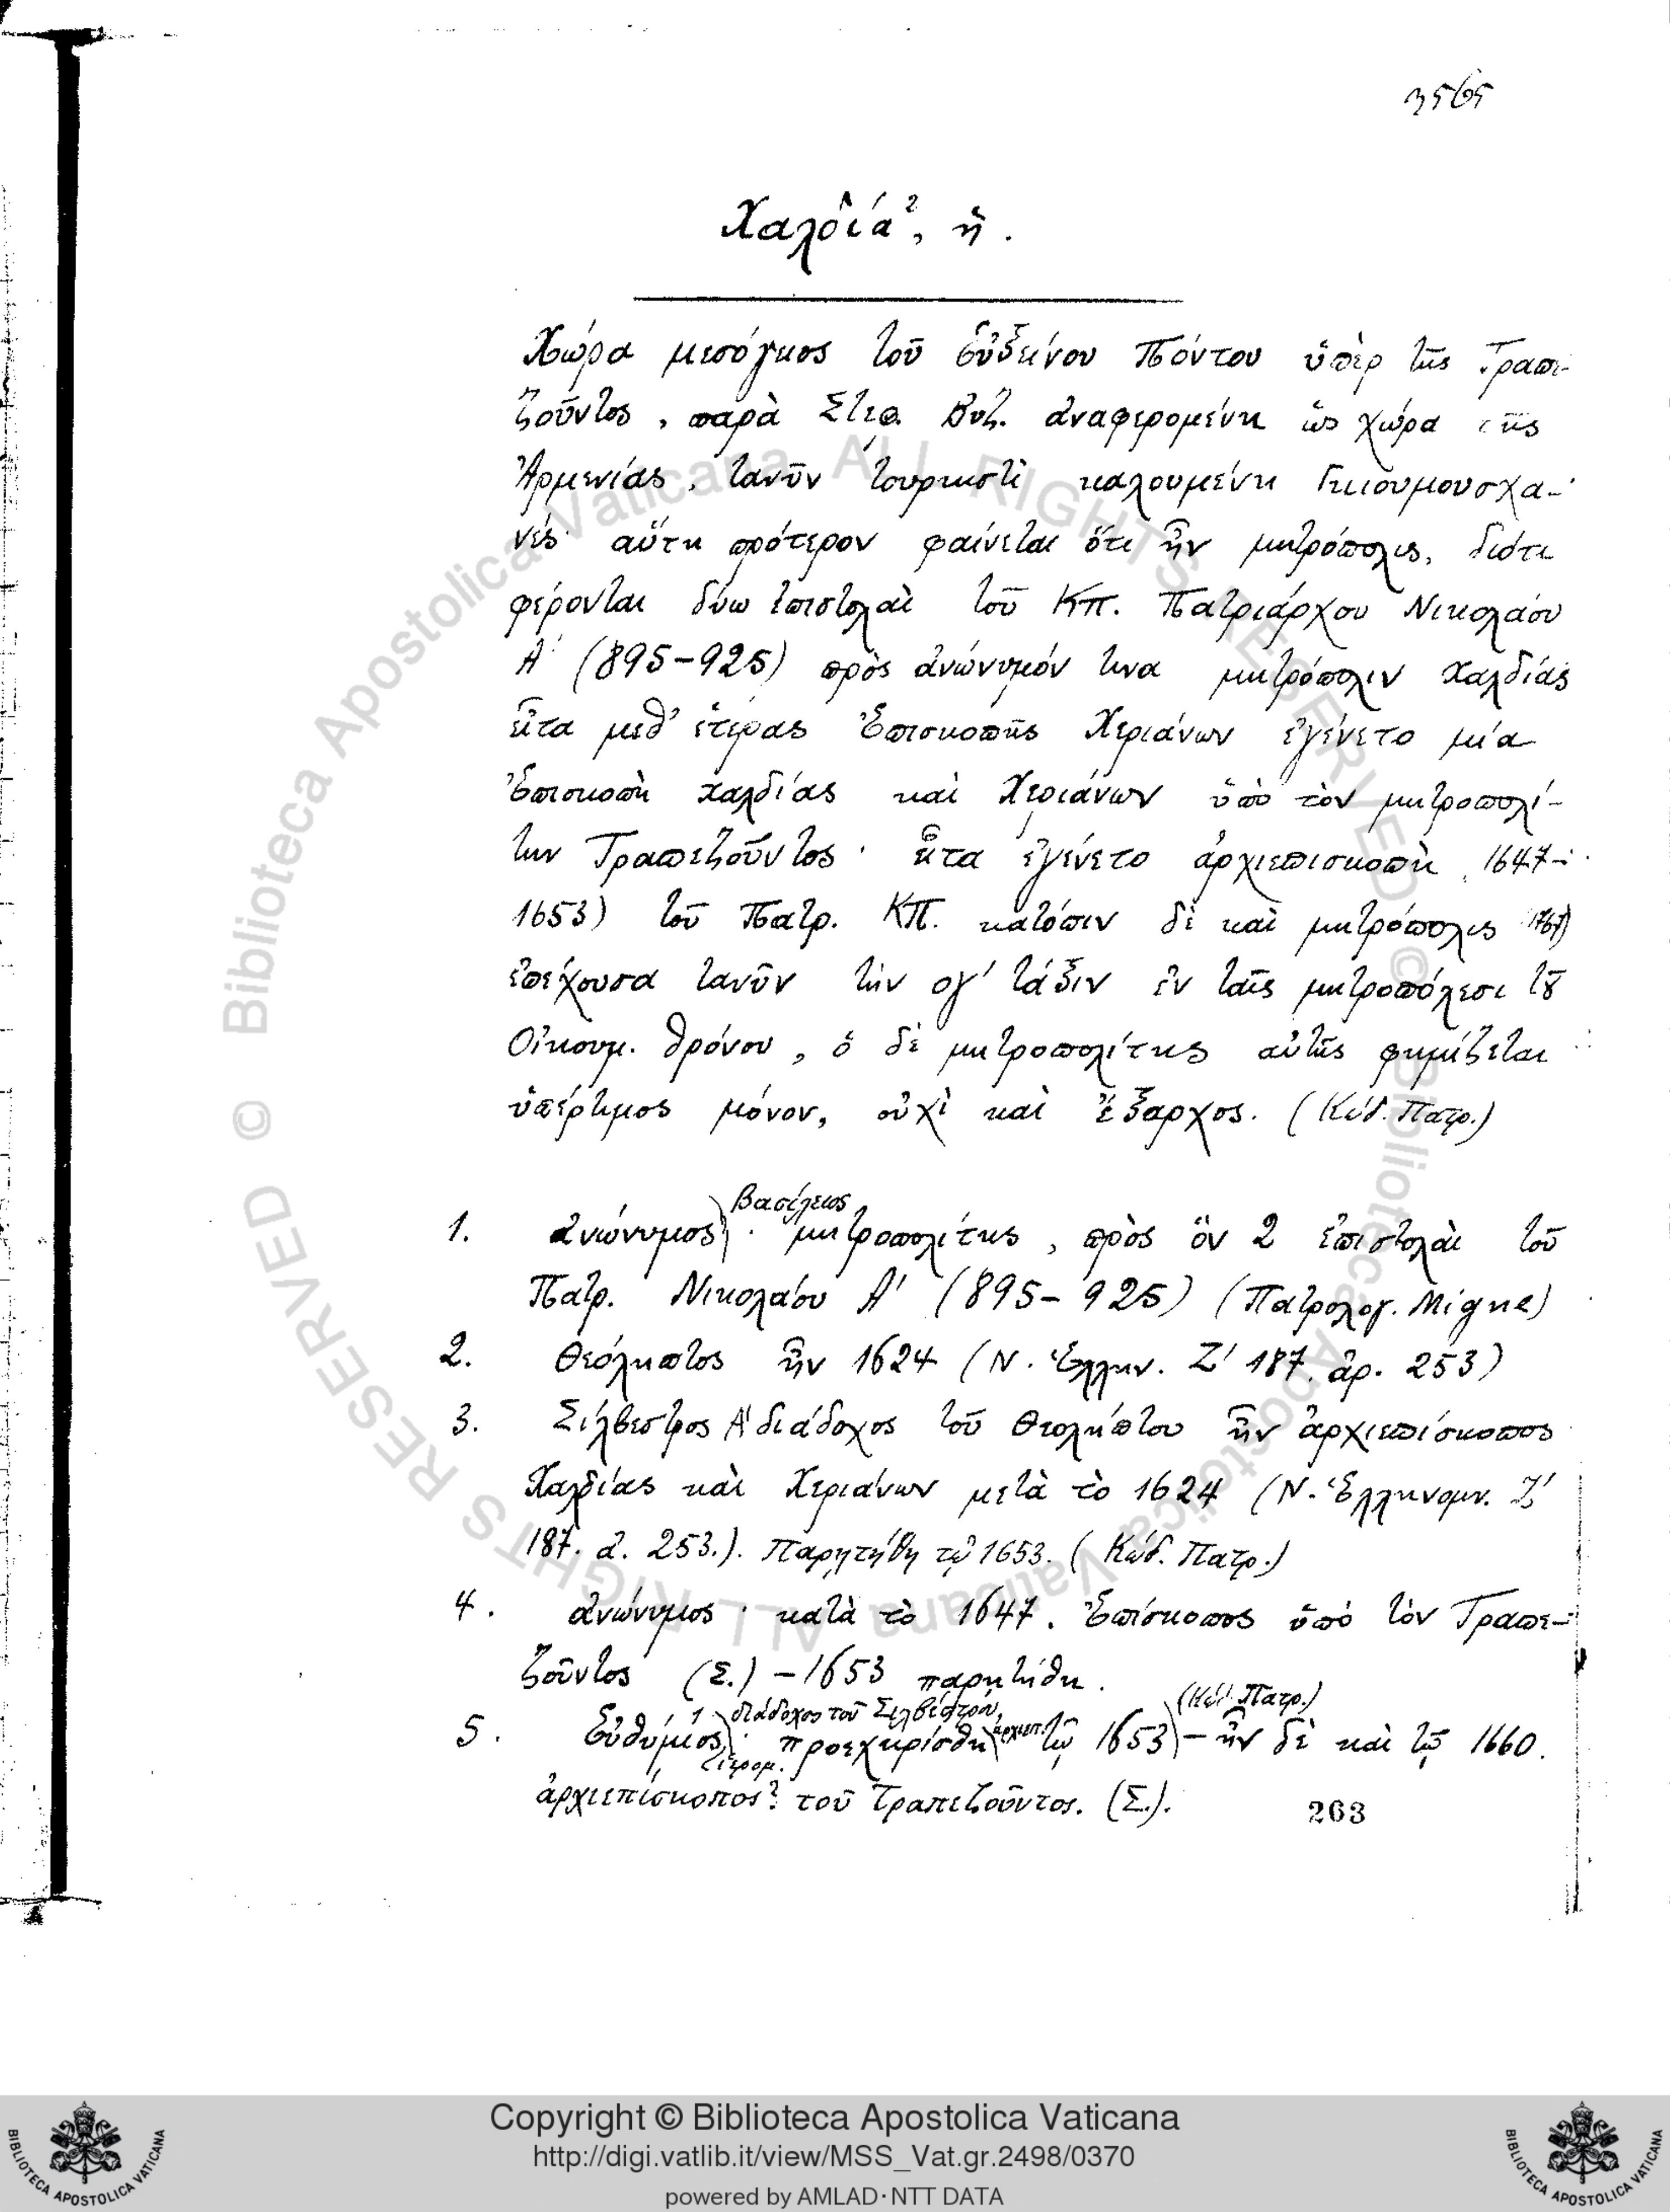 3565
Χαλδία², ἡ.
Χώρα μεσόγειος τοῦ Εὐξείνου Πόντου ὑπὲρ τῆς Τραπε-
ζοῦντος, παρὰ Στεφ. Βυζ. ἀναφερομένη ὡς χώρα τῆς
Ἀρμενίας, τανῦν τουρκιστὶ καλουμένη Γκιουμουσχα-
νές· αὕτη πρότερον φαίνεται ὅτι ἦν μητρόπολις, διότι
φέρονται δύω ἐπιστολαὶ τοῦ Κπ. Πατριάρχου Νικολάου
Α' (895-925) πρὸς ἀνώνυμόν τινα μητρόπολιν Χαλδίας
εἶτα μεθ' ἑτέρας Ἐπισκοπῆς Χεριάνων ἐγένετο μία
Ἐπισκοπὴ Χαλδίας καὶ Χεριάνων ὑπὸ τὸν μητροπολί-
την Τραπεζοῦντος· εἶτα ἐγένετο ἀρχιεπισκοπὴ 1647-
1653) τοῦ Πατρ. ΚΠ. κατόπιν δὲ καὶ μητρόπολις 1767)
ἐπέχουσα τανῦν τὴν ογ' τάξιν ἐν ταῖς μητροπόλεσι τȣ͂
Οἰκουμ. θρόνου, ὁ δὲ μητροπολίτης αὐτῆς φημίζεται
ὑπέρτιμος μόνον, οὐχὶ καὶ ἔξαρχος. (Κώδ. Πατρ.)
Βασίλειος
1. ἀνώνυμος)· μητροπολίτης, πρὸς ὃν 2 ἐπιστολαὶ τοῦ
Πατρ. Νικολάου Α' (895-925) (Πατρολογ. Migne)
2. Θεόληπτος ἦν 1624 (Ν. Ἑλλην. Ζ' 187. ἀρ. 253)
3. Σίλβεστρος Α' διάδοχος τοῦ Θεολήπτου ἦν ἀρχιεπίσκοπος
Χαλδίας καὶ Χεριάνων μετὰ τὸ 1624 (Ν. Ἑλληνομν. Ζ'
187. ἀ. 253.). Παρῃτήθη τῷ 1653. (Κώδ. Πατρ.)
4. ἀνώνυμος· κατὰ τὸ 1647. Ἐπίσκοπος ὑπὸ τὸν Τραπε-
ζοῦντος (Σ.) - 1653 παρητήθη.
1 διάδοχος τοῦ Σιλβέστρου, (Κώδ. Πατρ.)
5. Εὐθύμιος)· προεχειρίσθη ἀρχιεπ. τῷ 1653) - ἦν δὲ καὶ τῷ 1660.
ἱερομ.
ἀρχιεπίσκοπος? τοῦ Τραπεζοῦντος. (Σ.).
263
© Biblioteca Apostolica Vaticana ALL RIGHTS RESERVED © Biblioteca Apostolica Vaticana ALL RIGHTS RESERVED
Copyright © Biblioteca Apostolica Vaticana
http://digi.vatlib.it/view/MSS_Vat.gr.2498/0370
powered by AMLAD·NTT DATA
BIBLIOTECA APOSTOLICA VATICANA
BIBLIOTECA APOSTOLICA VATICANA